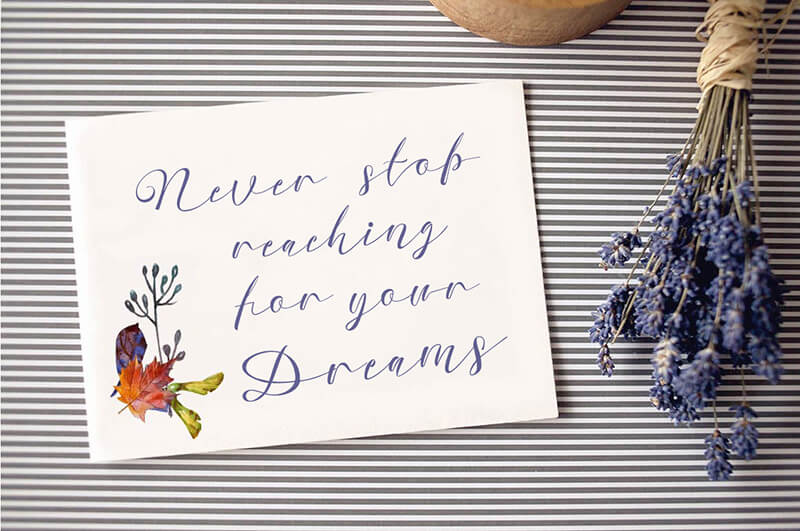 Never stop
reaching
for your
Dreams